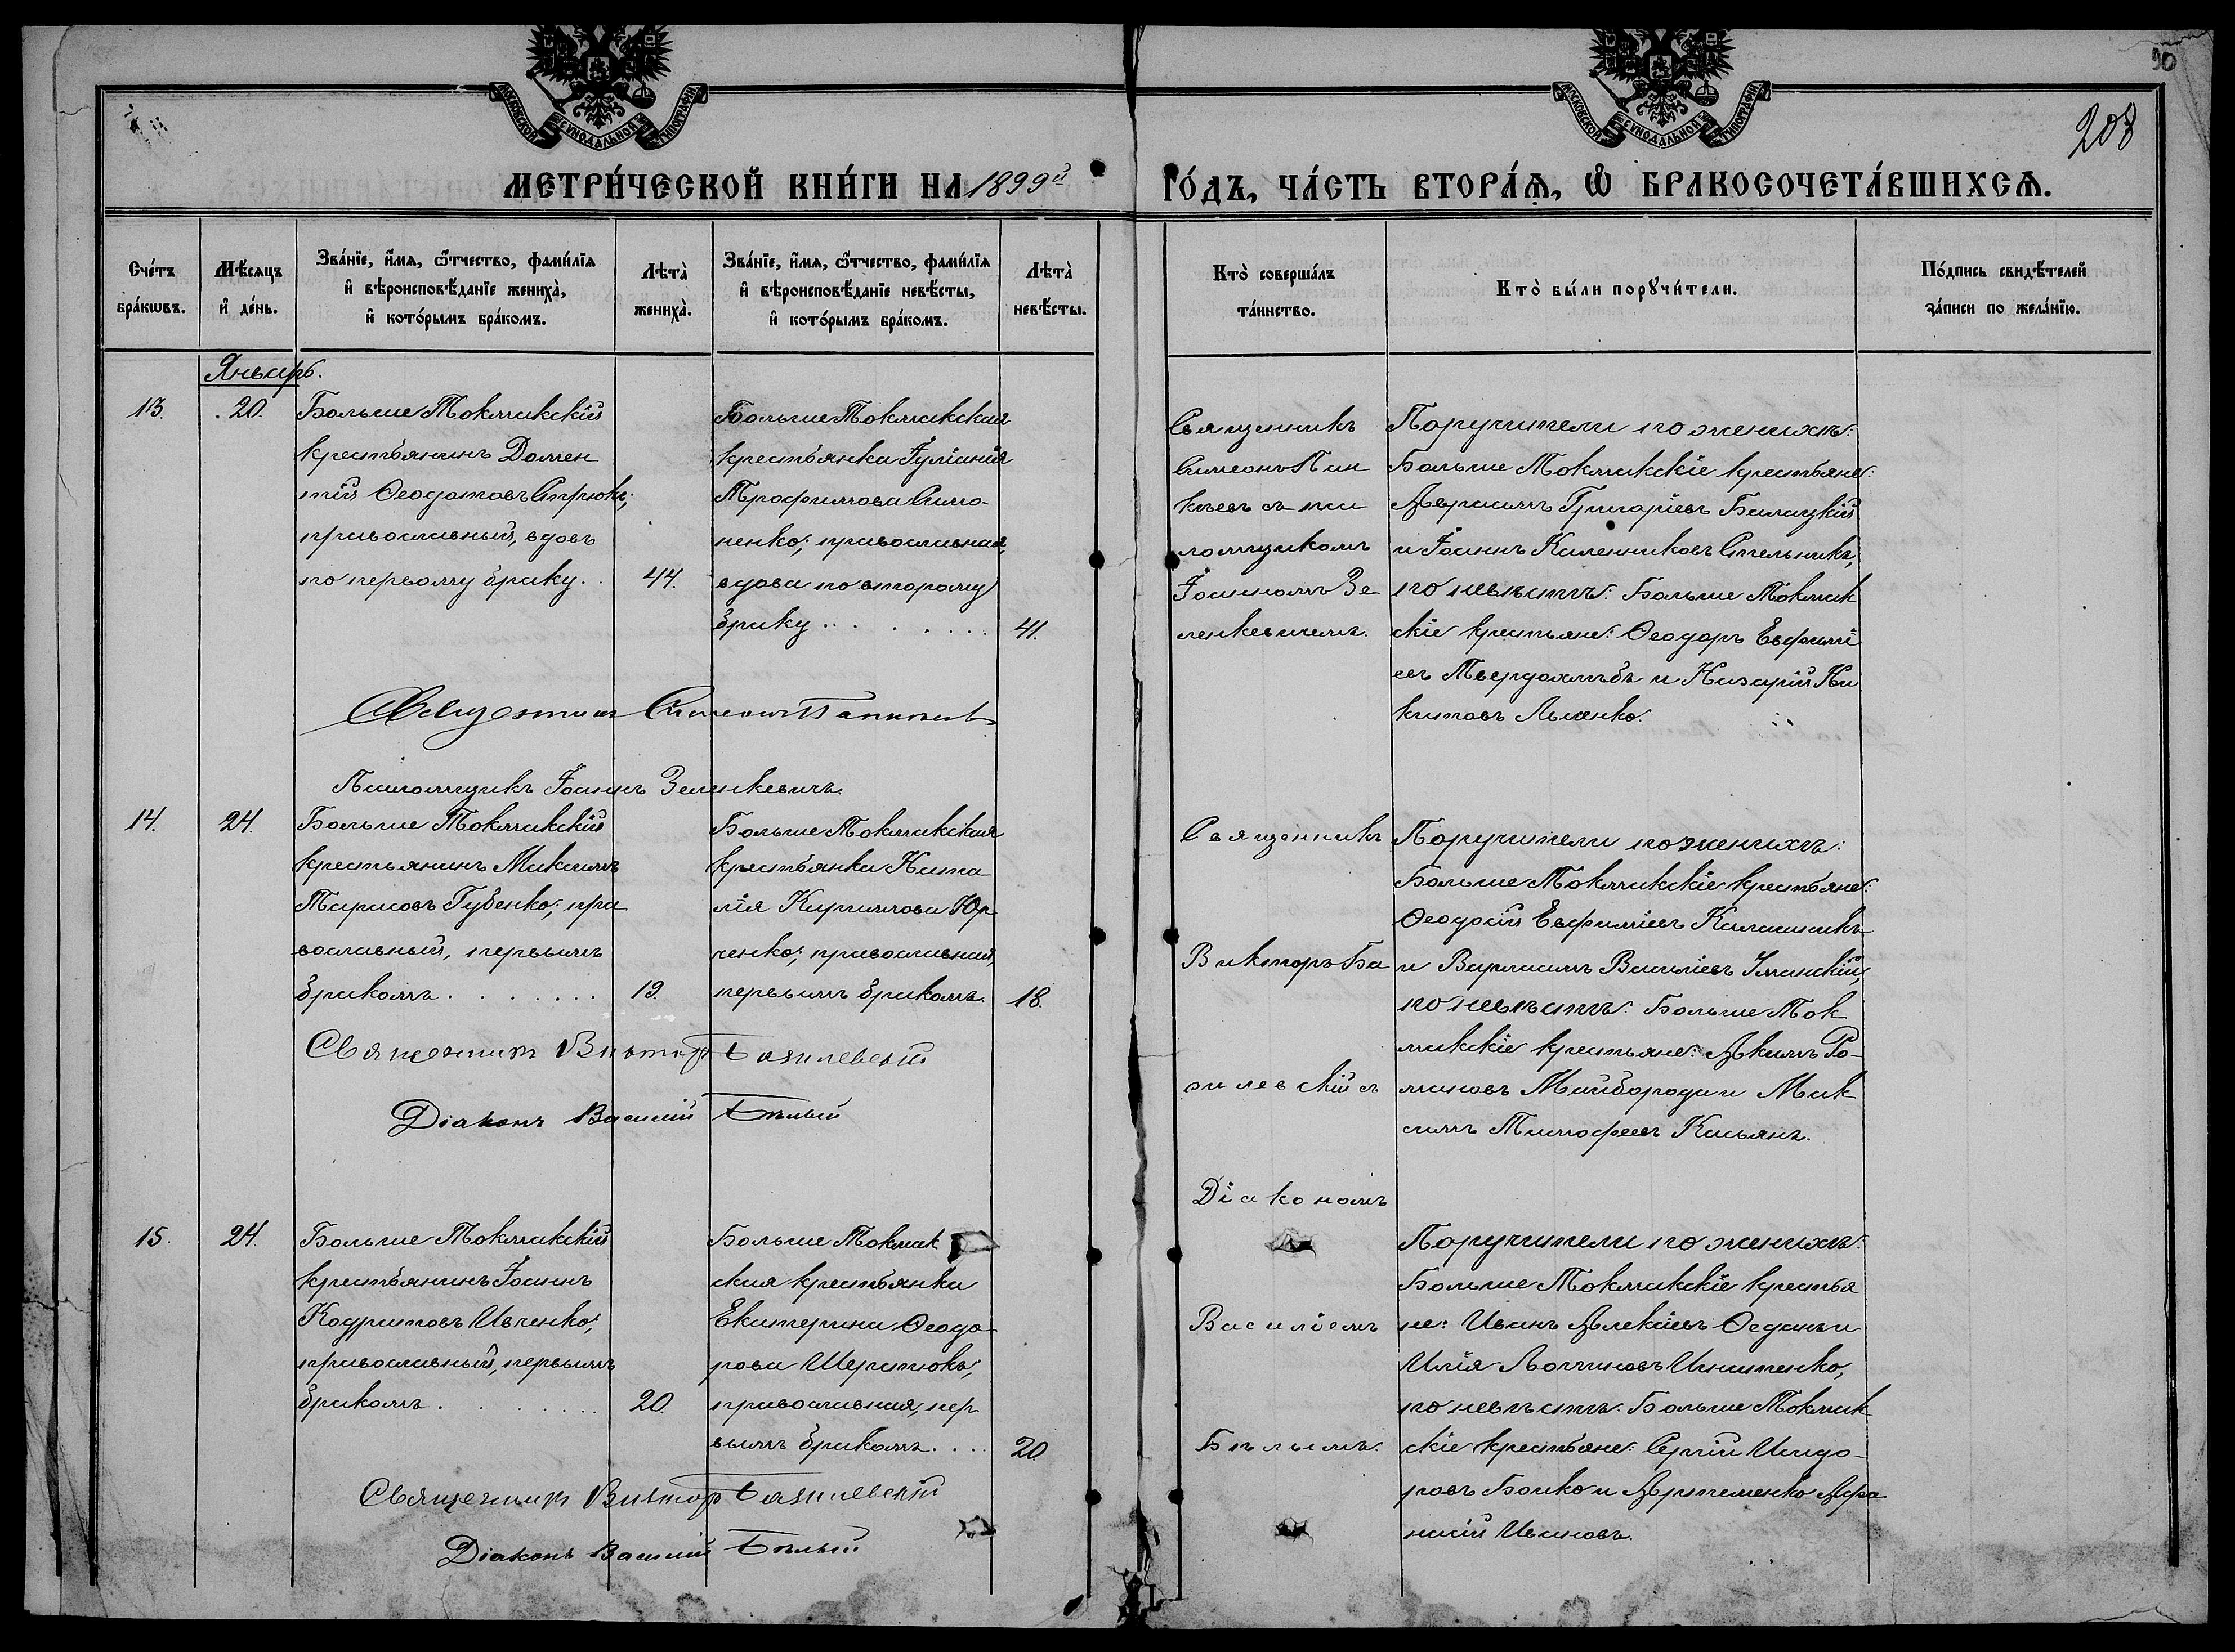 МОСКОВСКОЙ СУНОДАЛЬНОЙ ТИПОГРАФІИ
МОСКОВСКОЙ СУНОДАЛЬНОЙ ТИПОГРАФІИ
208
МЕТРИ́ЧЕСКОЙ КНИ́ГИ НА 1899й ГО́ДЪ, ЧА́СТЬ ВТОРА́Ѧ, Ѽ БРАКОСОЧЕТА́ВШИХСѦ.
Сче́тъ бра́кѡвъ.
Мѣ́сяцъ и҆ де́нь.
Зва́нїе, и҆́мѧ, ѻ҆́тчество, фами́лїѧ
и҆ вѣроисповѣ́данїе жениха̀,
и҆ кото́рымъ бра́комъ.
Лѣта̀ жениха̀.
Зва́нїе, и҆́мѧ, ѻ҆́тчество, фами́лїѧ
и҆ вѣроисповѣ́данїе невѣ́сты,
и҆ кото́рымъ бра́комъ.
Лѣта̀ невѣ́сты.
Кто̀ соверша́лъ та́инство.
Кто̀ бы́ли порꙋчи́тели.
По́дпись свидѣ́телей за́писи по жела́нїю.
Январь.
13. 20.
Больше Токмакскій
крестьянинъ Домен
тій Ѳеодотовъ Стрюкъ;
православный, вдовъ
по первому браку. . 44.
Больше Токмакская
крестьянка Іуліанія
Трофимова Симо-
ненко; православная,
вдова по второму
браку . . . . . . . 41.
Священникъ
Симеонъ Пан
кѣевъ съ пса
ломщикомъ
Іоанномъ Зе
ленкевичемъ.
Поручители по женихѣ:
Больше Токмакскіе крестьяне:
Герасимъ Григоріевъ Билицкій
и Іоаннъ Каленниковъ Стельникъ,
по невѣстѣ: Больше Токмак
скіе крестьяне: Ѳеодоръ Евфимі
евъ Твердохлѣбъ и Назарій Ни
китовъ Льяенко.
Священникъ Симеонъ Панкѣевъ
Псаломщикъ Іоаннъ Зеленкевичъ.
14. 24.
Больше Токмакскій
крестьянинъ Максимъ
Тарасовъ Губенко; пра
вославный, первымъ
бракомъ . . . . . . . 19.
Больше Токмакская
крестьянка Ната
лія Кириллова Юр
ченко; православная,
первымъ бракомъ. 18.
Священникъ
Викторъ Ба
зилевскій съ
Діакономъ
Василіемъ
Бѣлымъ.
Поручители по женихѣ:
Больше Токмакскіе крестьяне:
Ѳеодосій Евфиміевъ Калашникъ
и Варлаамъ Васильевъ Уманскій,
по невѣстѣ: Больше Ток
макскіе крестьяне: Акимъ Ро-
мановъ Майборода и Мак
симъ Тимофеевъ Касьянъ.
Священникъ Викторъ Базилевскій
Діаконъ Василій Бѣлый
15. 24.
Больше Токмакскій
крестьянинъ Іоаннъ
Кодратовъ Ивченко;
православный, первымъ
бракомъ . . . . . . . 20.
Больше Токмак
ская крестьянка
Екатерина Ѳеодо
рова Шерстюкъ;
православная, пер
вымъ бракомъ. . . . 20
Поручители по женихѣ:
Больше Токмакскіе крестья
не: Иванъ Алексіевъ Ѳеданъ и
Илія Логгиновъ Игнатенко,
по невѣстѣ: Больше Токмак
скіе крестьяне: Сергій Исидо-
ровъ Бойко и Артеменко Афа
насій Ивановъ.
Священникъ Викторъ Базилевскій
Діаконъ Василій Бѣлый